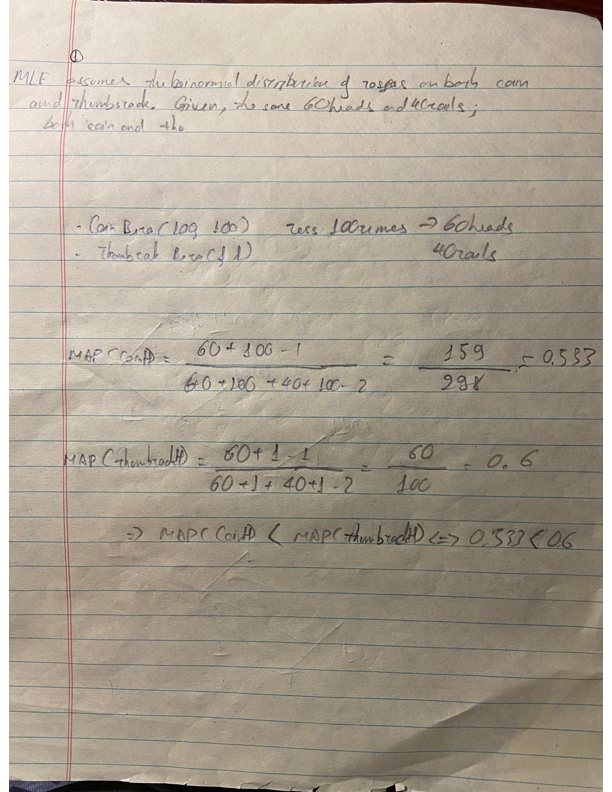 ①
MLE assumes the binormial distribution of tosses on both coin
and thumbstack. Given, the same 60heads and 40tails;
both coin and the
· Coin Beta(100, 100) toss 100times → 60heads
· Thumbtack Beta(1, 1) 40tails
MAP(CoinH) = 60 + 100 - 1 / 60 + 100 + 40 + 100 - 2 = 159 / 298 = 0.533
MAP(thumbtackH) = 60 + 1 - 1 / 60 + 1 + 40 + 1 - 2 = 60 / 100 = 0.6
=> MAP(CoinH) < MAP(thumbtackH) <=> 0.533 < 0.6